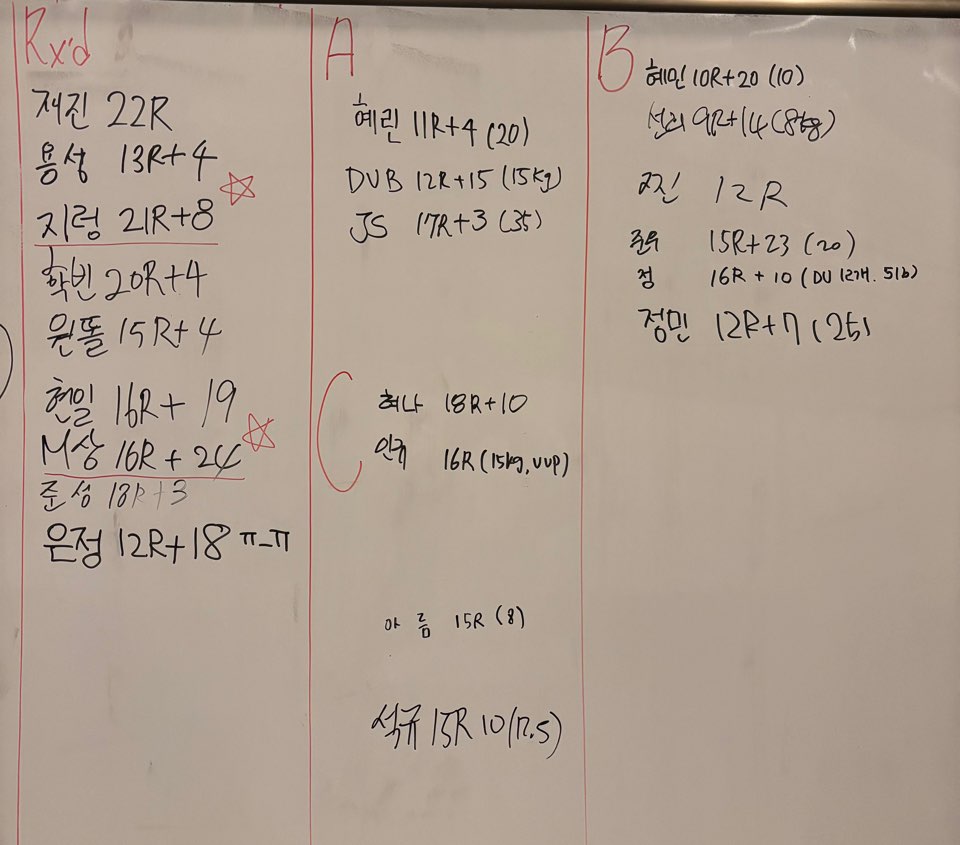 Rx'd
재진 22R
용성 13R+4
지렁 21R+8
학빈 20R+4
원똘 15R+4
현일 16R+19
M상 16R+24
준성 18R+3
은정 12R+18 ㅠ_ㅠ
A
혜린 11R+4 (20)
DUB 12R+15 (15kg)
JS 17R+3 (35)
C
혀나 18R+10
인규 16R (15kg, UUP)
아름 15R (8)
석규 15R 10 (17.5)
B
혜민 10R+20 (10)
9R+14
12R
준우 15R+23 (20)
정 16R + 10 (DU 12개. 5lb)
정민 12R+7 (25)